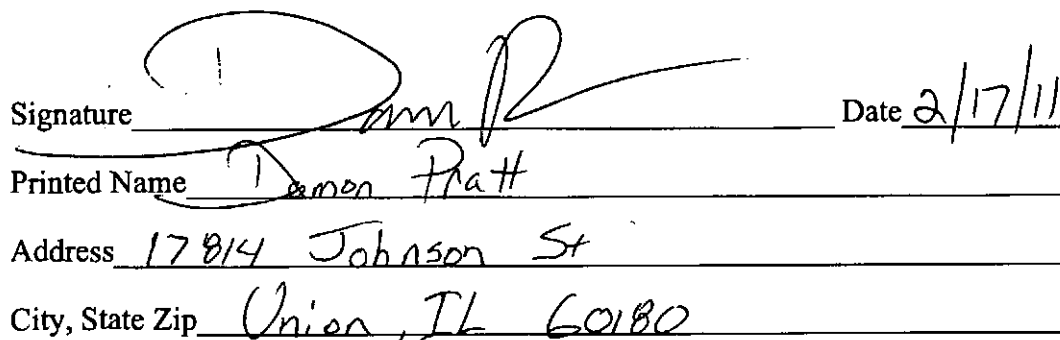 Signature Date 2/17/11
Printed Name Damon Pratt
Address 17814 Johnson St
City, State Zip Union, IL 60180